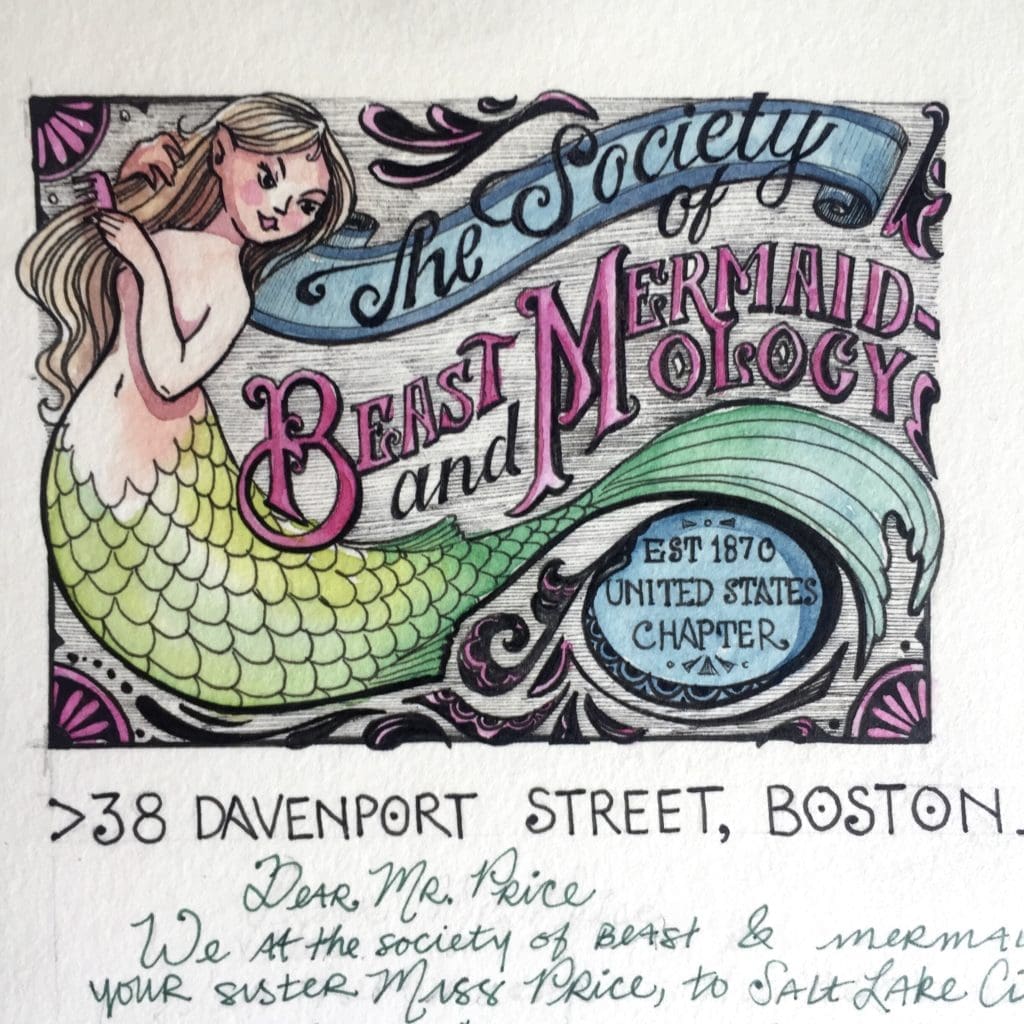 The Society
of
BEAST
and
MERMAID-
OLOGY
EST 1870
UNITED STATES
CHAPTER
>38 DAVENPORT STREET, BOSTON.
Dear Mr. Price
We at the society of Beast & mermai
your sister Miss Price, to Salt Lake Ci